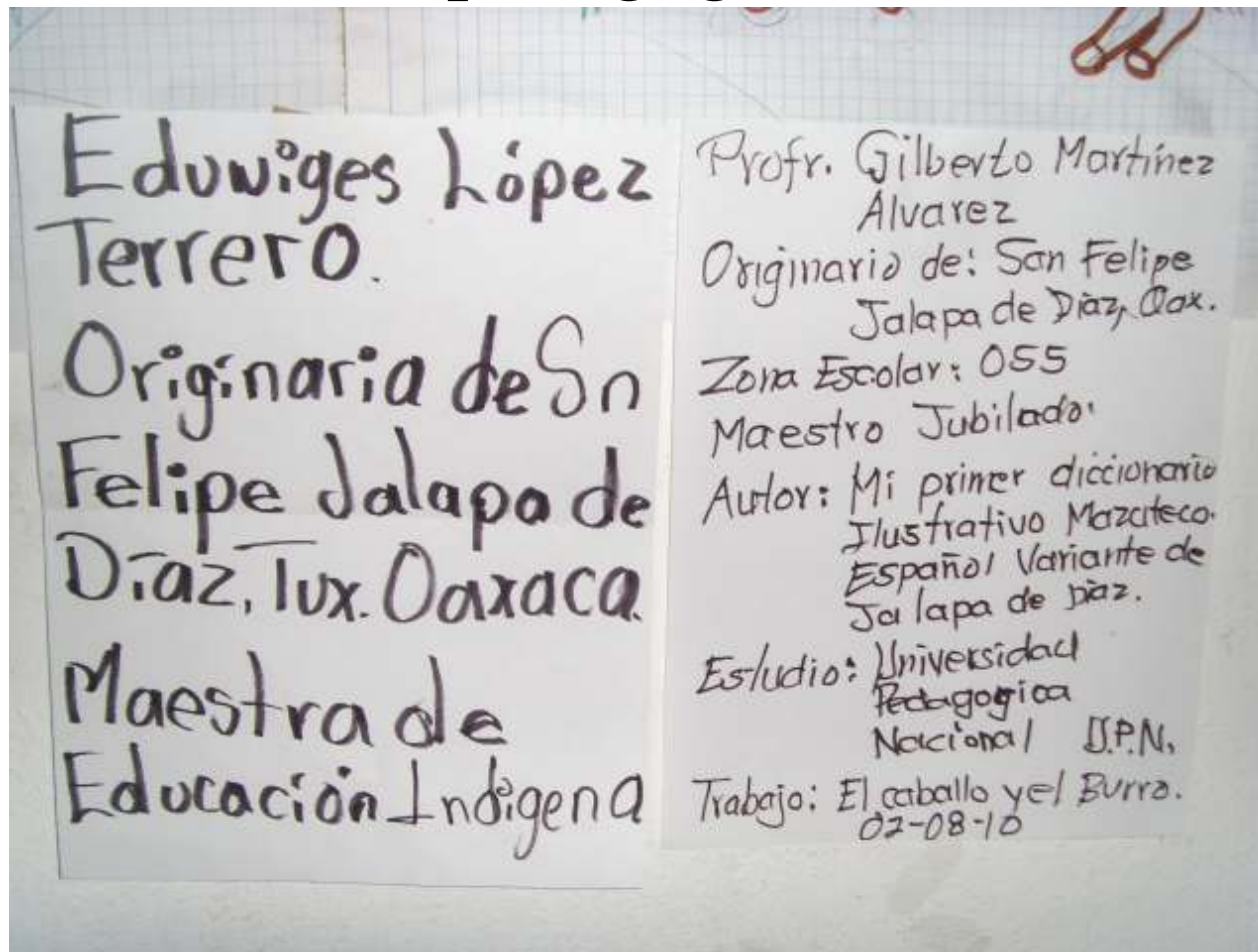 Eduwiges López
Terrero.
Originaria de Sn
Felipe Jalapa de
Díaz, Tux. Oaxaca.
Maestra de
Educación Indígena
Profr. Gilberto Martínez
Álvarez
Originario de: San Felipe
Jalapa de Díaz, Oax.
Zona Escolar: 055
Maestro Jubilado.
Autor: Mi primer diccionario
Ilustrativo Mazateco.
Español Variante de
Jalapa de Díaz.
Estudio: Universidad
Pedagogica
Nacional U.P.N.
Trabajo: El caballo y el Burro.
02-08-10